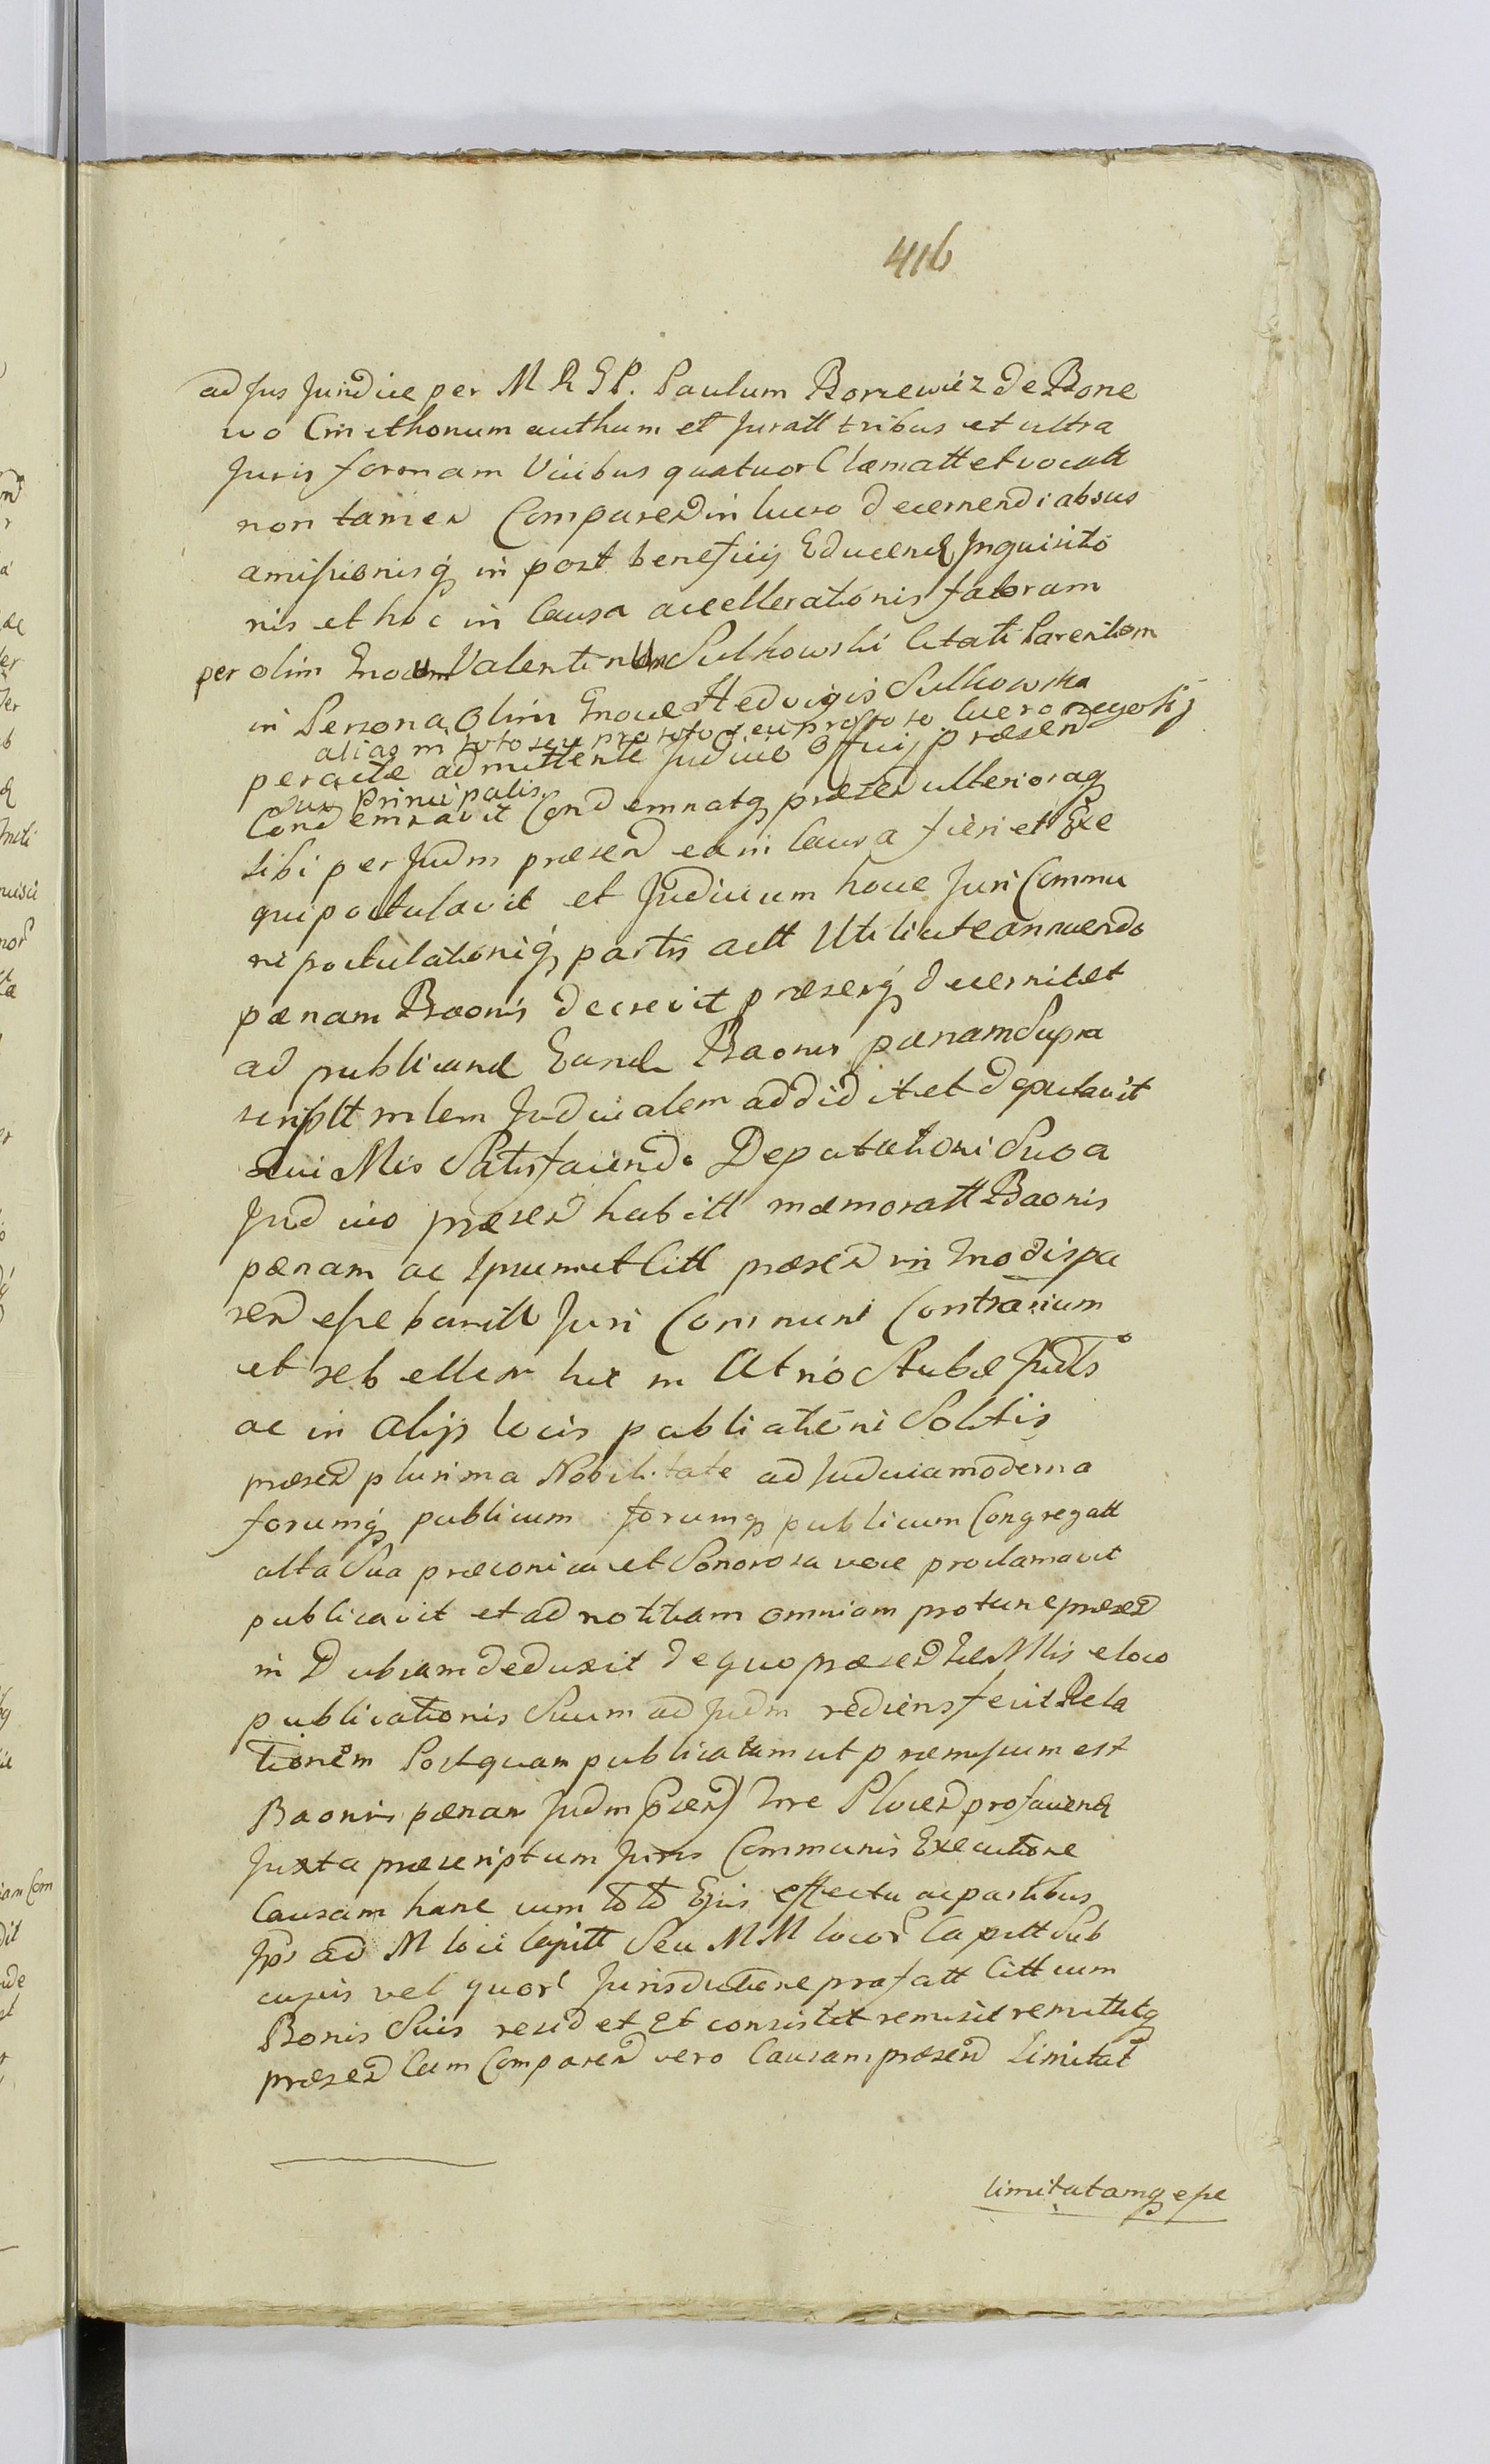 416
ad Jus Juridice per M R G P. Paulum Borzewicz de Borze
wo Cmethonum authum et Juratt tribus et ultra
Juris formam Vicibus quatuor Clamatt et vocatt
non tamen Comparen in lucro decernendi absus
amissionisq in post beneficij Educend Inquisitio
nis et hoc in Causa accellerationis fatorum
per olim Gnocum Valentinum Sulkowski Citati Parentem
in Persona Olim Gnoce Hedvigis Sulkowska
alias in toto seu pro toto seu pro toto lucro negotij
peractæ admittente Judicio Officij præsen
sui Principalis
Condemnavit Condemnatq præsen ulterioraq
sibi per Judm præsen ea in Causa fieri et Exe
qui postulavit et Judicium hocce Juri Commu
ni postulationiq partis actt Utiliute annuendo
pænam Baonis decrevit præsenq decernit et
ad publicand Eand Baonis pænam Supra
scriptt mlem Judicialem addidit et deputavit
Qui Mis Satisfaciendo Deputationi Suo a
Judicio præsen habitt mæmoratt Baonis
pænam ac Ipsummet Citt præsen in Tmo dispa
ren esse banitt Juri Communi Contrarium
et rebellem hic in Atrio Stubæ Judlis
ac in Alijs locis publicationi Solitis
præsen plurima Nobilitate ad Judicia moderna
forumq publicum forumq publicum Congregatt
alta Sua præconica et Sonorosa voce proclamavit
publicavit et ad notitiam omnium pro tunc præsen
in Dubiam deduxit de quo præsen Mis e loco
publicationis Suum ad Judm rediens fecit Rela
tionem Postquam publicatam ut præmissum est
Baonis pænam Judm præsen Trre Plocen pro faciend
Juxta præscriptum Juris Communis Executione
Causam hanc cum toto Ejus effectu ac partibus
Ips ad M loci Capitt Seu MM locor Capitt Sub
cujus vel quor Jurisdictione præfatt Citt cum
Bonis Suis resid et Et consistit remisit remittitq
præsen Cum Comparen vero Causam præsen Limitat
limitatamq esse